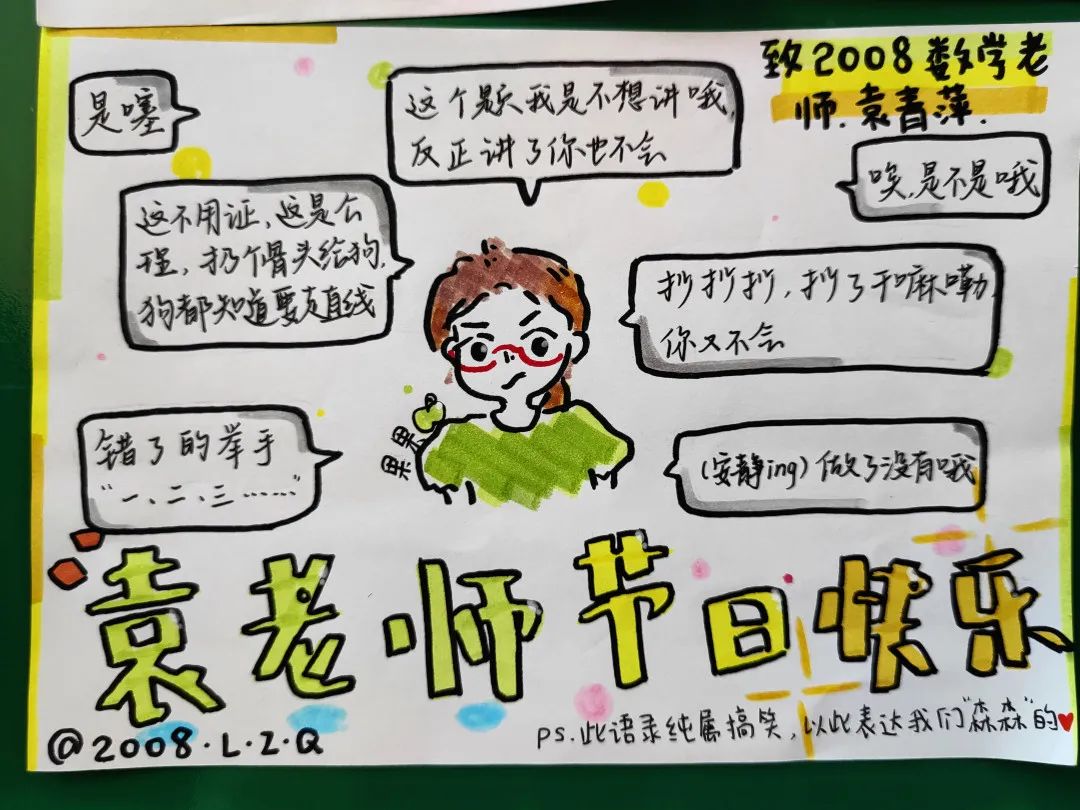 致2008数学老
师.袁春萍.
是噻
这个题我是不想讲哦,
反正讲了你也不会
唉,是不是哦
这不用证、这是公
理，扔个骨头给狗,
狗都知道要走直线
抄抄抄，抄了干嘛嘞,
你又不会
错了的举手
“一、二、三……”
(安静ing)做了没有哦
果
果
袁老师节日快乐
@2008·L·Z·Q
PS.此语录纯属搞笑,以此表达我们“森森”的